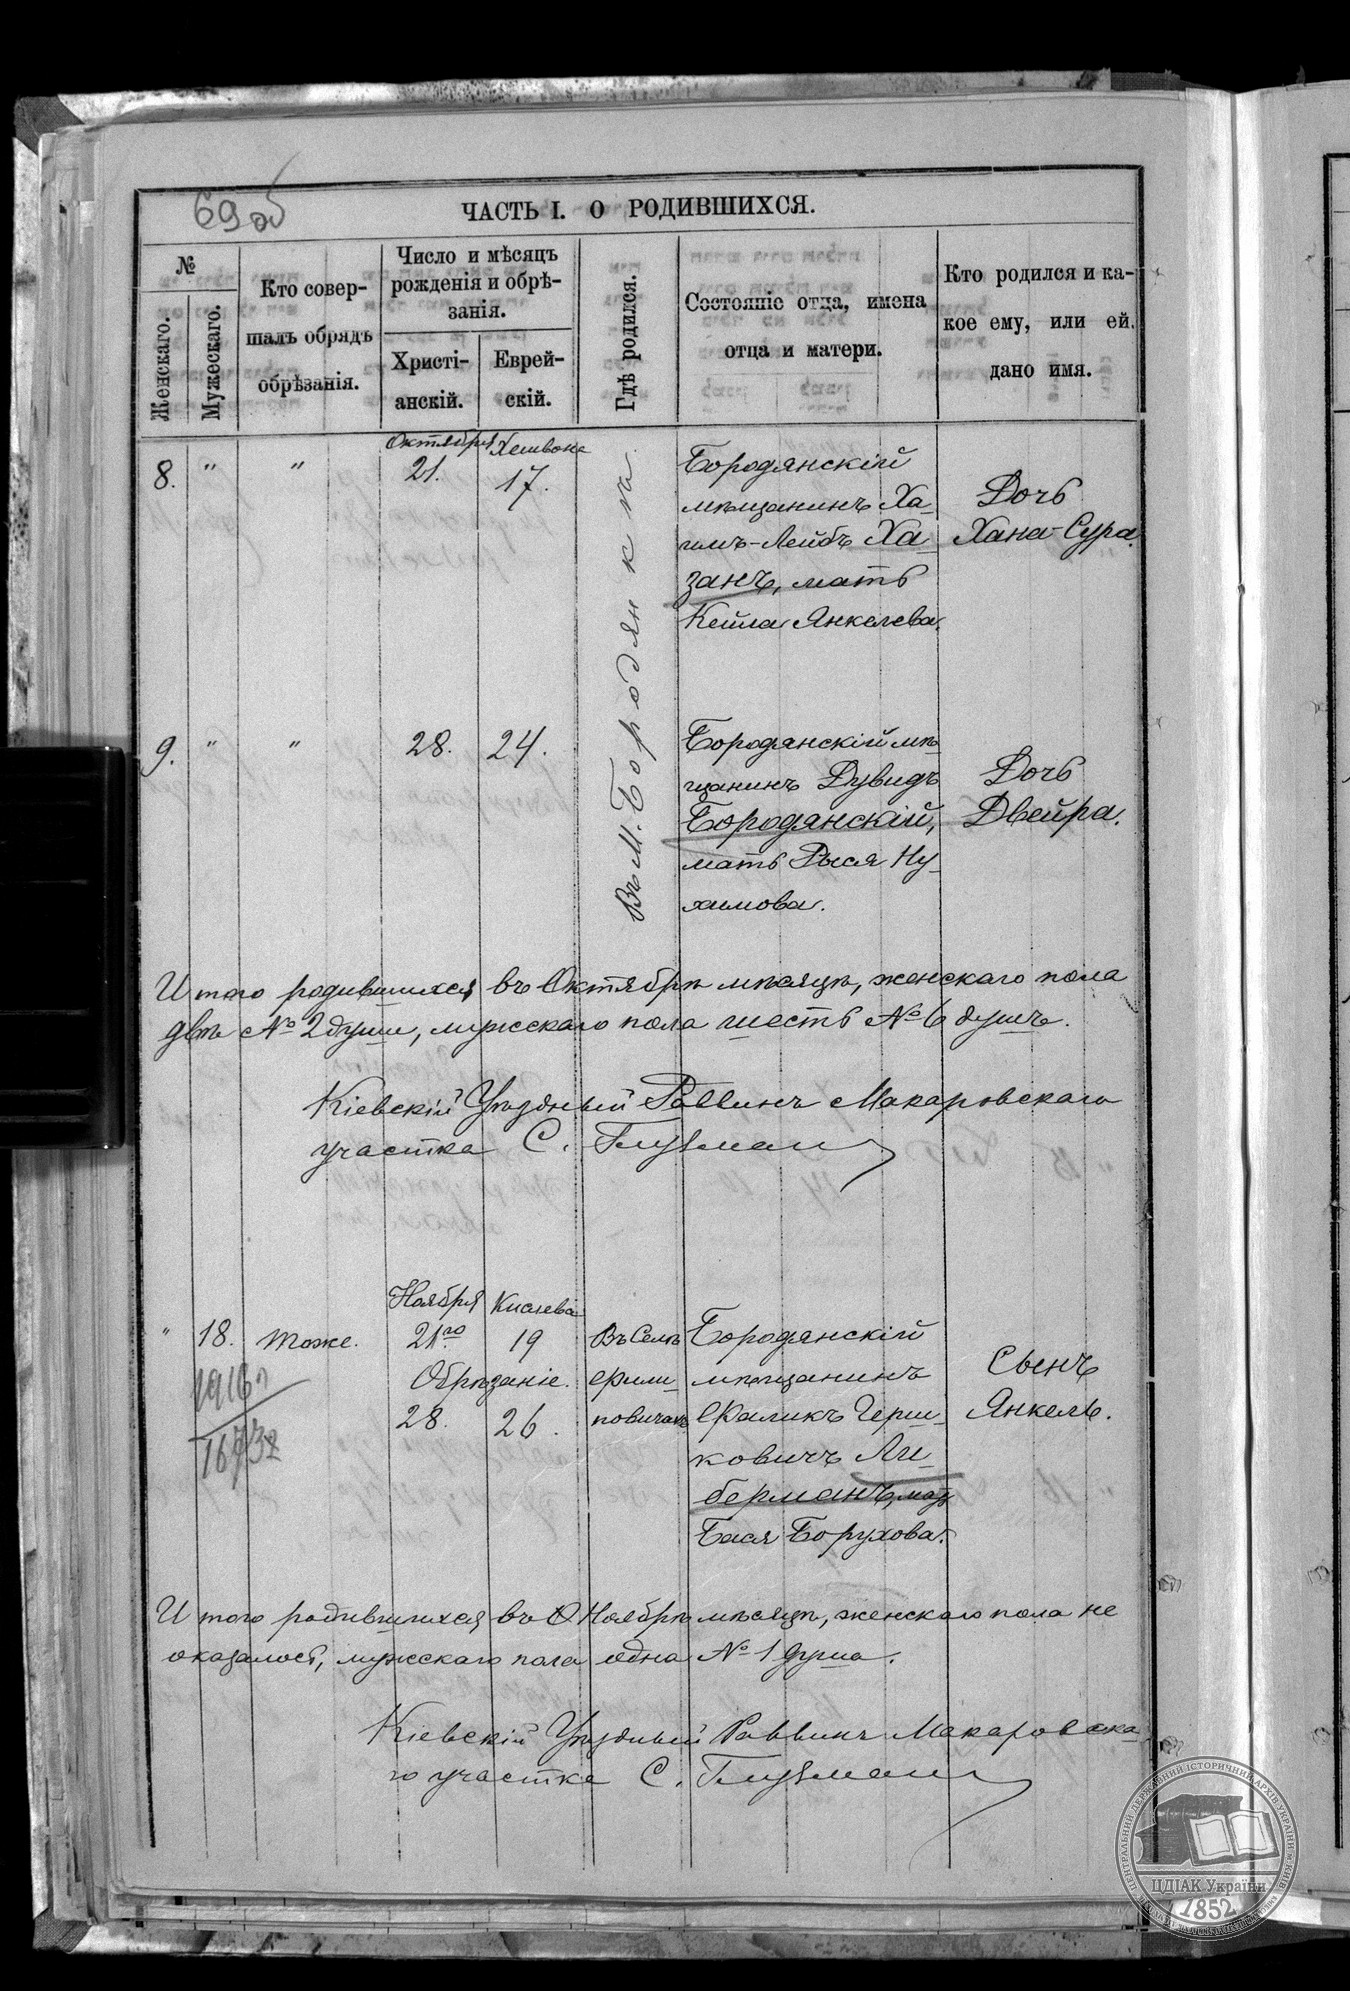 69 об
ЧАСТЬ I. О РОДИВШИХСЯ.
№
Женскаго.
Мужескаго.
Кто совер-
шалъ обрядъ
обрѣзанія.
Число и мѣсяцъ
рожденія и обрѣ-
занія.
Христі-
анскій.
Еврей-
скій.
Гдѣ родился.
Состояніе отца, имена
отца и матери.
Кто родился и ка-
кое ему, или ей.
дано имя.
Октября Хешвона
8. " " 21. 17.
Въ М. Бородянкѣ
Бородянскій
мѣщанинъ Ха-
имъ-Лейбъ Ха-
занъ, мать
Кейла Янкелева.
Дочь
Хана-Сура.
9. " " 28. 24.
Бородянскій мѣ
щанинъ Дувидъ
Бородянскій,
мать Рыся Ну-
химова.
Дочь
Двейра.
Итого родившихся въ Октябрѣ мѣсяцѣ, женскаго пола
двѣ № 2 души, мужскаго пола шесть № 6 душъ.
Кіевскій Уѣздный Раввинъ Макаровскаго
участка С. Глузман
Ноября Кислева
" 18. тоже. 21го 19
Обрѣзаніе.
28. 26.
1916
Въ Селѣ
Фили-
повичахъ
Бородянскій
мѣщанинъ
Фаликъ Герш-
ковичъ Ли-
берманъ, мать
Бася Борухова.
Сынъ
Янкель.
Итого родившихся въ Ноябрѣ мѣсяцѣ, женскаго пола не
оказалось, мужскаго пола одна № 1 душа.
Кіевскій Уѣздный Раввинъ Макаровска
го участка С. Глузман
ЦЕНТРАЛЬНИЙ ДЕРЖАВНИЙ ІСТОРИЧНИЙ АРХІВ УКРАЇНИ, м. КИЇВ
ЦДІАК України
1852